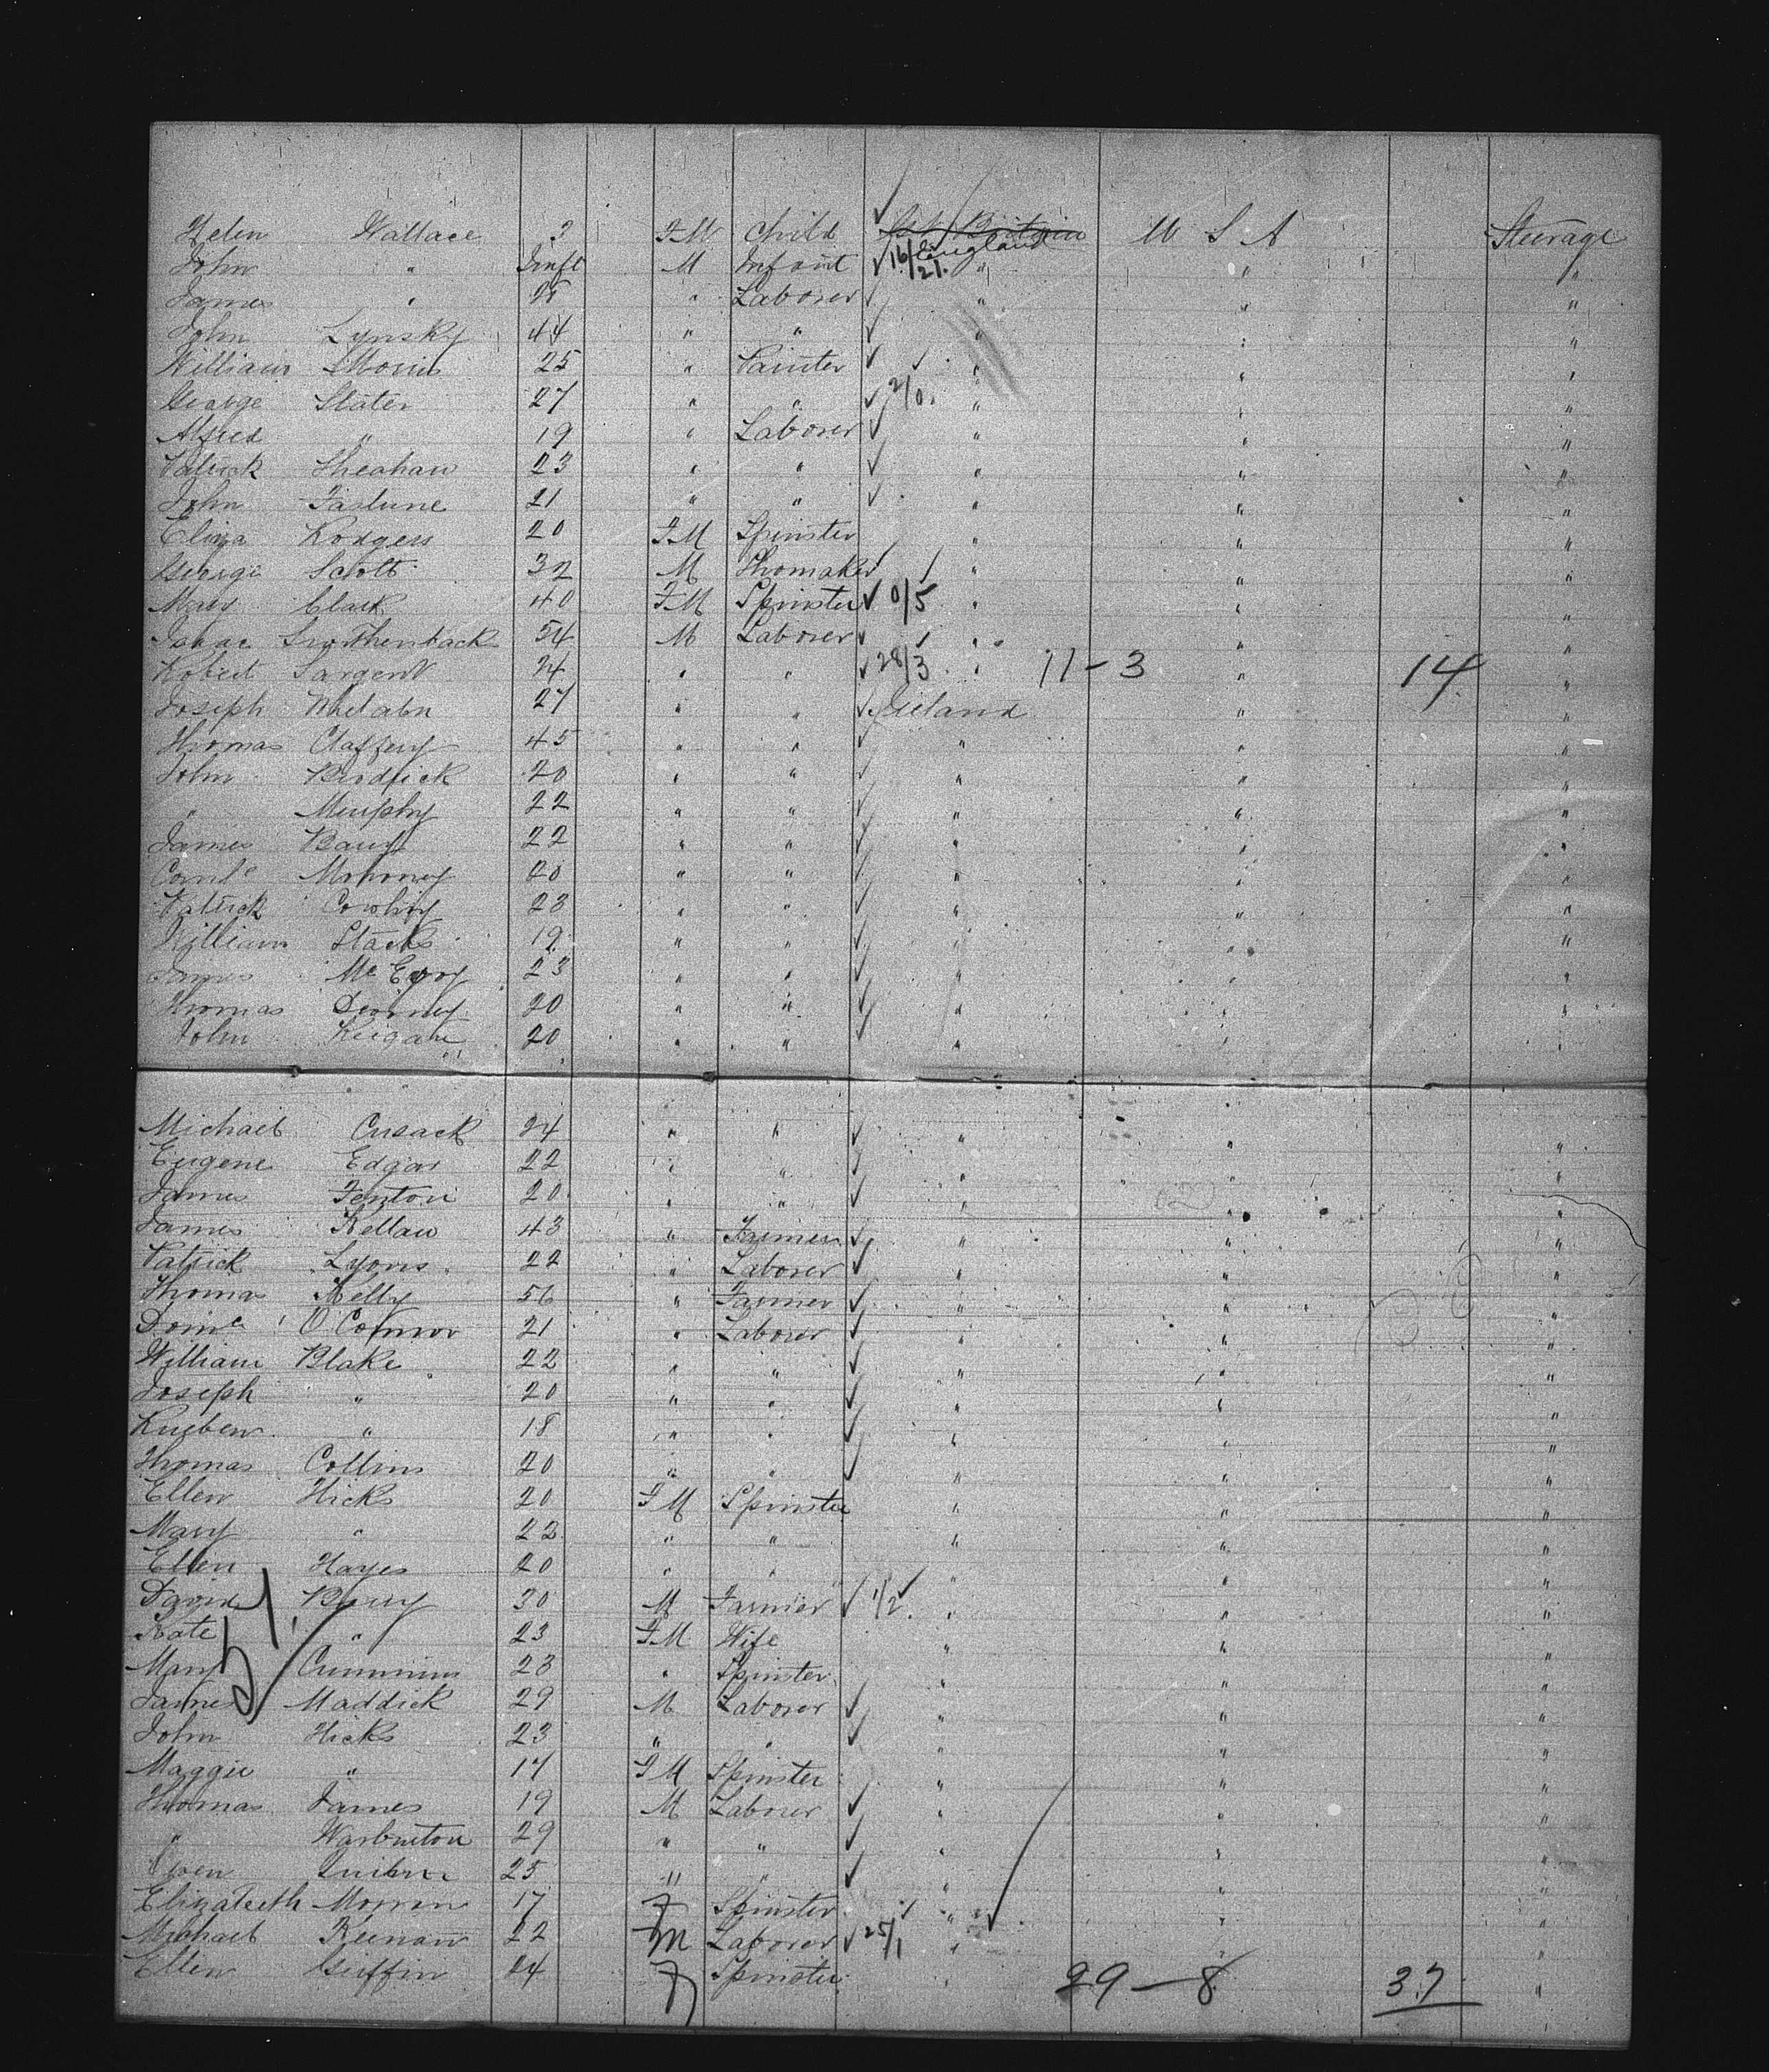 Helen Wallace 3 FM Child Gt Britain U S A Steerage
England
John " Inft M Infant 16/21 " " "
James " 25 " Laborer " " "
John Lynsky 44 " " " " "
William Morris 25 " Painter " " "
George Slater 27 " " 2/0 " " "
Alfred " 19 " Laborer " " "
Patrick Sheahan 23 " " " " "
John Fastune 21 " " " " "
Eliza Rodgers 20 FM Spinster " " "
George Scott 32 M Shomaker " " "
Mary Clark 40 FM Spinster 0/5 " " "
Isaac 54 M Laborer " " "
Robert Sargent 24 " " 28/3 " 11-3 " 14 "
Joseph Whelahn 27 " " Ireland " "
Thomas Claffery 45 " " " " "
John Birdfick 20 " " " " "
" Murphy 22 " " " " "
James Barry 22 " " " " "
Cornls 20 " " " " "
Patrick Cowhig 23 " " " " "
William Stacks 19 " " " " "
James McEvoy 23 " " " " "
Thomas 20 " " " " "
John Keigan 20 " " " " "
Michael Cusack 24 " " " " "
Eugene Edgar 22 " " " " "
James Fenton 20 " " " " "
James Kellaw 43 " Farmer " " "
Patrick Lyons 22 " Laborer " " "
Thomas Kelly 56 " Farmer " " "
Domc O'Connor 21 " Laborer " " "
William Blake 22 " " " " "
Joseph " 20 " " " " "
Rueben " 18 " " " " "
Thomas Collins 20 " " " " "
Ellen Hicks 20 FM Spinster " " "
Mary " 22 " " " " "
Ellen Hayes 20 " " " " "
David Barry 30 M Farmer 1/2 " " "
Kate " 23 FM Wife " " "
Mary Cummins 23 " Spinster " " "
51
James Maddick 29 M Laborer " " "
John Hicks 23 " " " " "
Maggie " 17 FM Spinster " " "
Thomas James 19 M Laborer " " "
" Warburton 29 " " " " "
Owen 25 " " " " "
Elizabeth Morran 17 F Spinster " " "
Michael Keenan 22 m Laborer 25/1 " " "
Ellen Griffin 24 F Spinster " 29-8 37 "